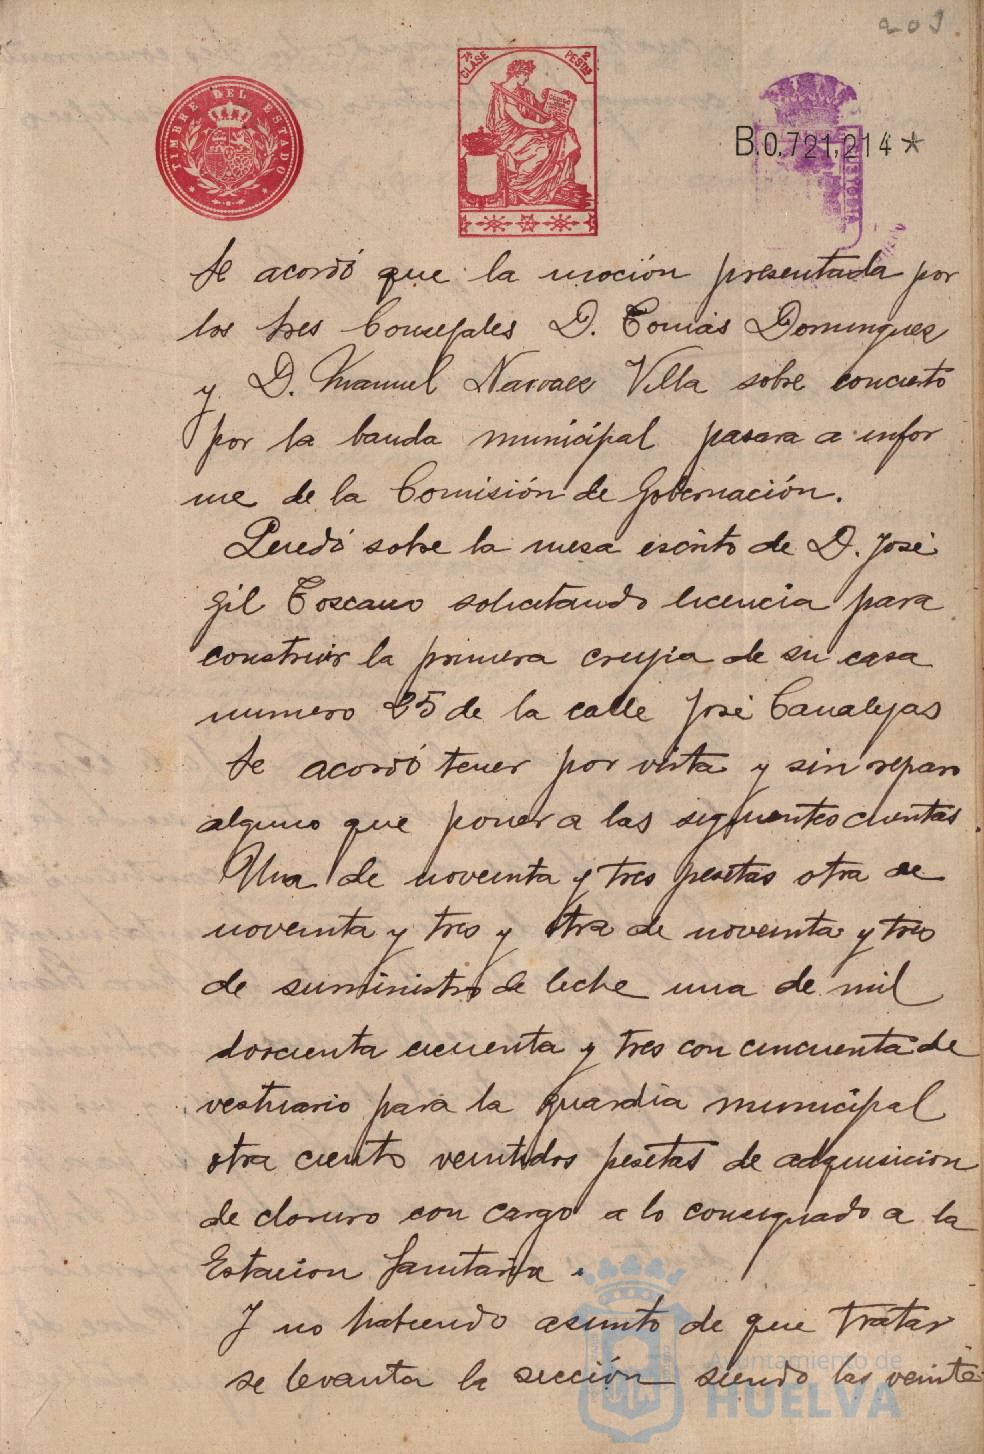 203
TIMBRE DEL ESTADO
7ª CLASE 2 PESTAS
B.0.721,214 *
CUSTODIA
Se acordó que la moción presentada por
los tres Consejales D. Tomás Dominguez
y D. Manuel Narvaez Villa sobre concierto
por la banda municipal pasara a infor
me de la Comisión de Gobernación.
Quedó sobre la mesa escrito de D. José
Gil Toscano solicitando licencia para
construir la primera crujia de su casa
numero 25 de la calle José Canalejas
Se acordó tener por vista y sin reparo
alguno que poner a las siguientes cuentas.
Una de noventa y tres pesetas otra de
noventa y tres y otra de noventa y tres
de suministro de leche una de mil
doscienta cicuenta y tres con cincuenta de
vestuario para la guardia municipal
otra ciento veintidos pesetas de adquisicion
de cloruro con cargo a lo consignado a la
Estacion Sanitaria.
Y no habiendo asunto de que tratar
se levanta la sección siendo las veinte
Ayuntamiento de
HUELVA